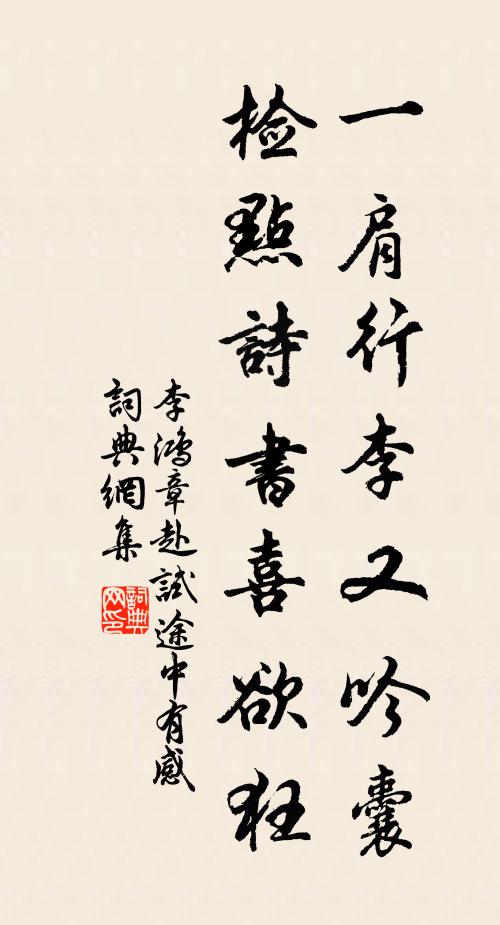 一肩行李又吟囊
檢點詩書喜欲狂
李鴻章赴試途中有感
詞典網集
詞典網印